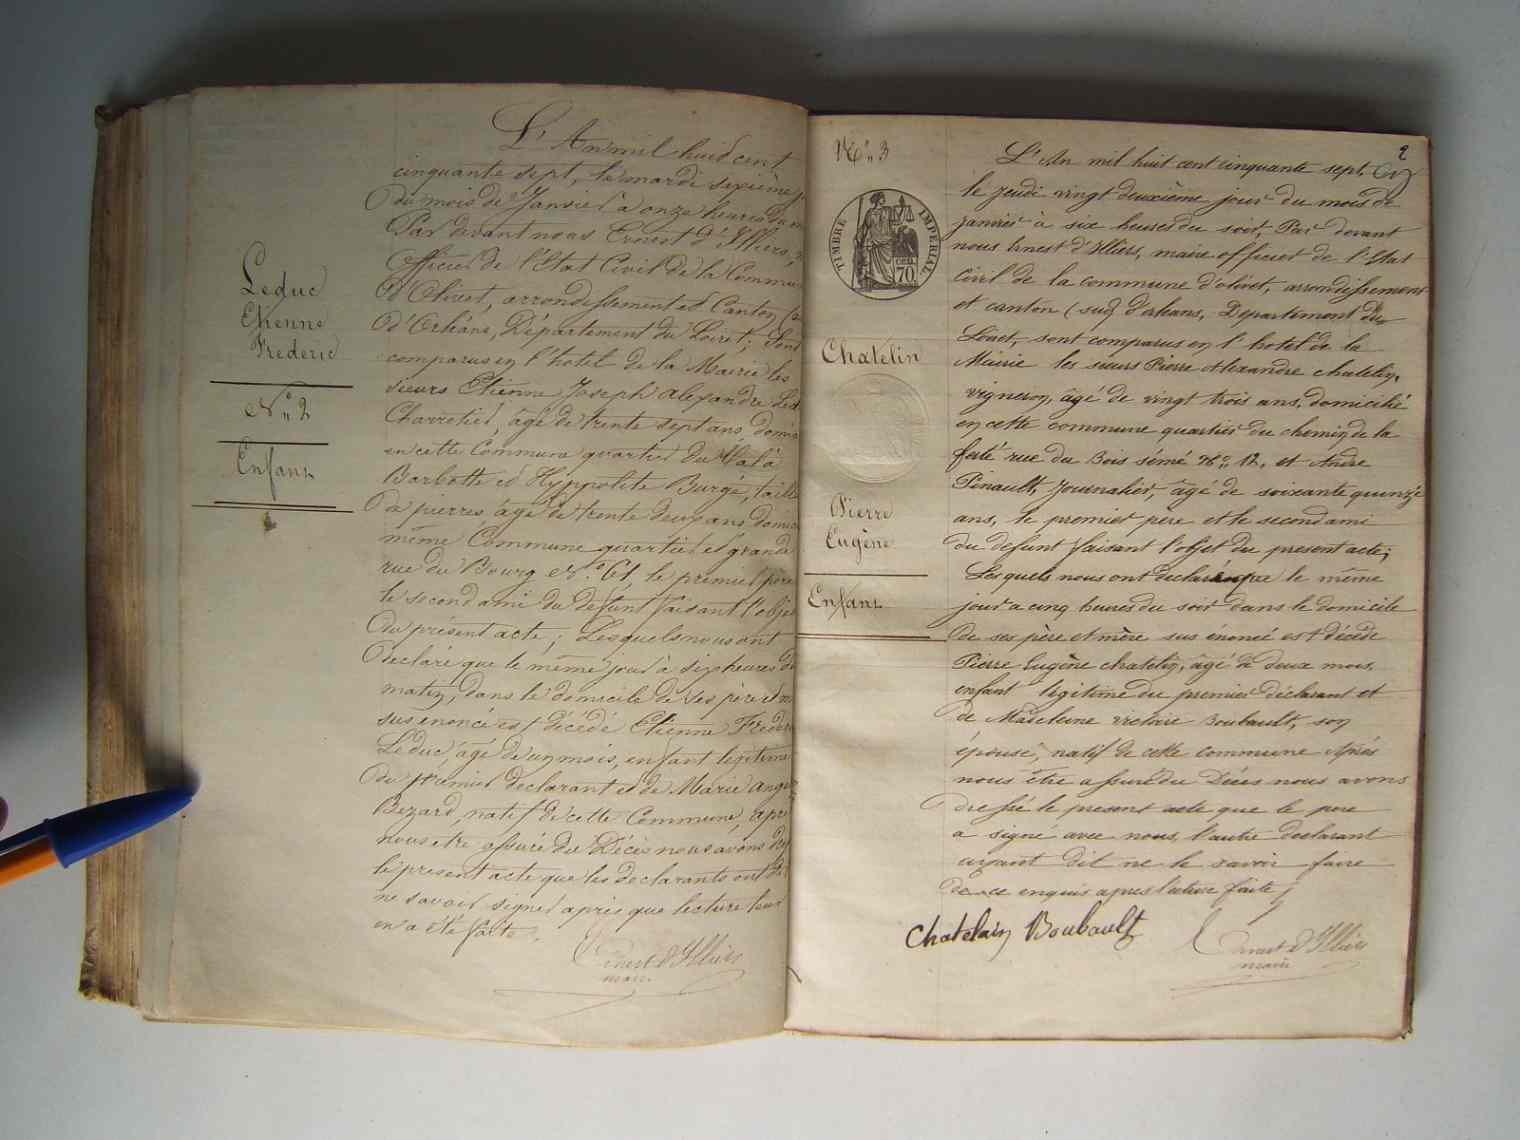 Leduc
Etienne
Frederic
N° 2
Enfant
L'An mil huit cent
cinquante sept, le mardi sixième
du mois de Janvier à onze heures du
Par devant nous Ernest d'Illiers,
Officier de l'Etat Civil de la Commune
d'Olivet, arrondissement et Canton
d'Orléans, Département du Loiret; Sont
comparus en l'hotel de la Mairie les
sieurs Etienne Joseph alexandre Led
Charretier, âgé de trente sept ans, domi
en cette Commune quartier du Val à
Barbotte et Hyppolite Burgé, taill
de pierres âgé de trente deux ans domic
même Commune quartier et grande
rue du Bourg N° 61, le premier père
le second ami du defunt faisant l'objet
du présent acte; Lesquels nous ont
declaré que le même jour à six heures du
matin, dans le domicile de ses père et m
sus énoncé est décédé Etienne Frederi
Leduc, âgé de un mois, enfant légitime
du premier declarant et de Marie ange
Bezard, natif de cette Commune, apre
nous etre assuré du Décès nous avons
le present acte que les declarants ont
ne savoir signer après que lecture leur
en a été faite.
Ernest d'Illiers
maire
2
N° 3
TIMBRE IMPERIAL
70
Chatelin
Pierre
Eugène
Enfant
L'An mil huit cent cinquante sept,
le jeudi vingt deuxième jour du mois de
janvier à six heures du soir, Par devant
nous Ernest d'Illiers, maire officier de l'Etat
Civil de la commune d'olivet, arrondissement
et canton (sud) d'orléans, Département du
Loiret, sont comparus en l'hotel de la
Mairie les sieurs Pierre Alexandre chatelin,
vigneron, âgé de vingt trois ans, domicilié
en cette commune quartier du chemin de la
ferté rue du Bois sémé N° 12, et André
Pinault, Journalier, âgé de soixante quinze
ans, le premier père et le second ami
du defunt faisant l'objet du present acte;
Lesquels nous ont declaré que le même
jour a cinq heures du soir dans le domicile
de ses père et mère sus énoncé est décédé
Pierre Eugène chatelin, âgé de deux mois,
enfant légitime du premier déclarant et
de Madeleine victoire Boubault, son
épouse, natif de cette commune Après
nous être assuré du Décès nous avons
dressé le present acte que le pere
a signé avec nous, l'autre declarant
ayant dit ne le savoir faire
de ce enquis apres lecture faite;
Chatelain Boubault
Ernest d'Illiers
maire